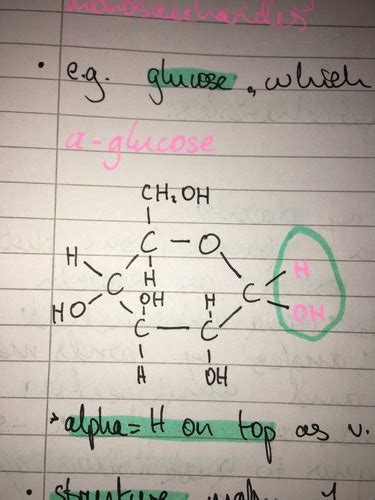 monosaccharides
• e.g. glucose, which
a-glucose
CH₂OH
C — O
H H H
C OH H C
HO C — C OH
H OH
* alpha = H on top as v.